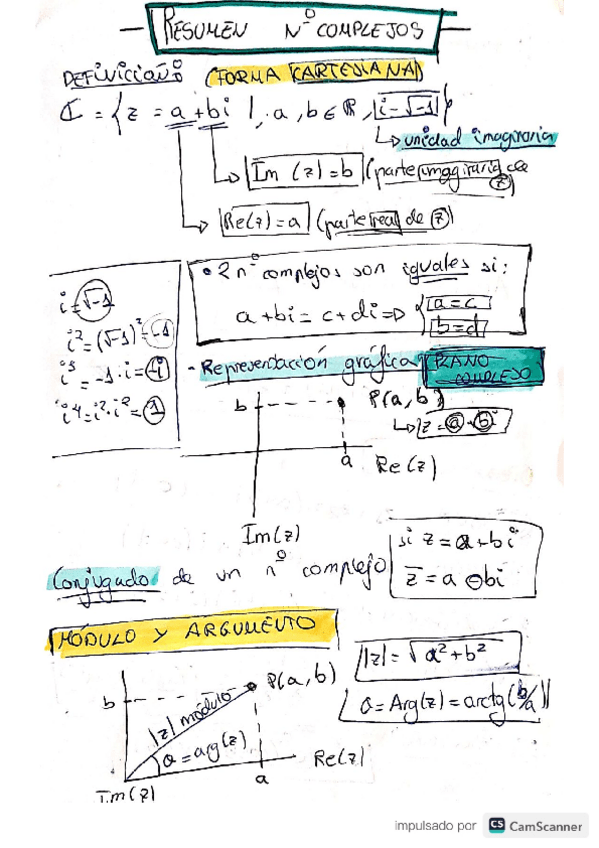 RESUMEN Nº COMPLEJOS
DEFINICIÓN: (FORMA CARTESIANA)
ℂ = { z = a + bi / a, b ∈ ℝ, i = √-1 }
↳ unidad imaginaria
↳ Im (z) = b (parte imaginaria de z)
↳ Re(z) = a (parte real de z)
i = √-1
i² = (√-1)² = -1
i³ = -1 · i = -i
i⁴ = i² · i² = 1
• 2 nº complejos son iguales si:
a + bi = c + di ⇒ { a = c
b = d
- Representación gráfica PLANO COMPLEJO
b P(a, b)
↳ z = a + bi
a Re(z)
Im(z)
Conjugado de un nº complejo
si z = a + bi
z̅ = a - bi
MÓDULO Y ARGUMENTO
|z| = √a² + b²
α = Arg(z) = arctg(b/a)
b P(a, b)
|z| módulo
α = arg(z)
Re(z)
a
Im(z)
impulsado por CS CamScanner